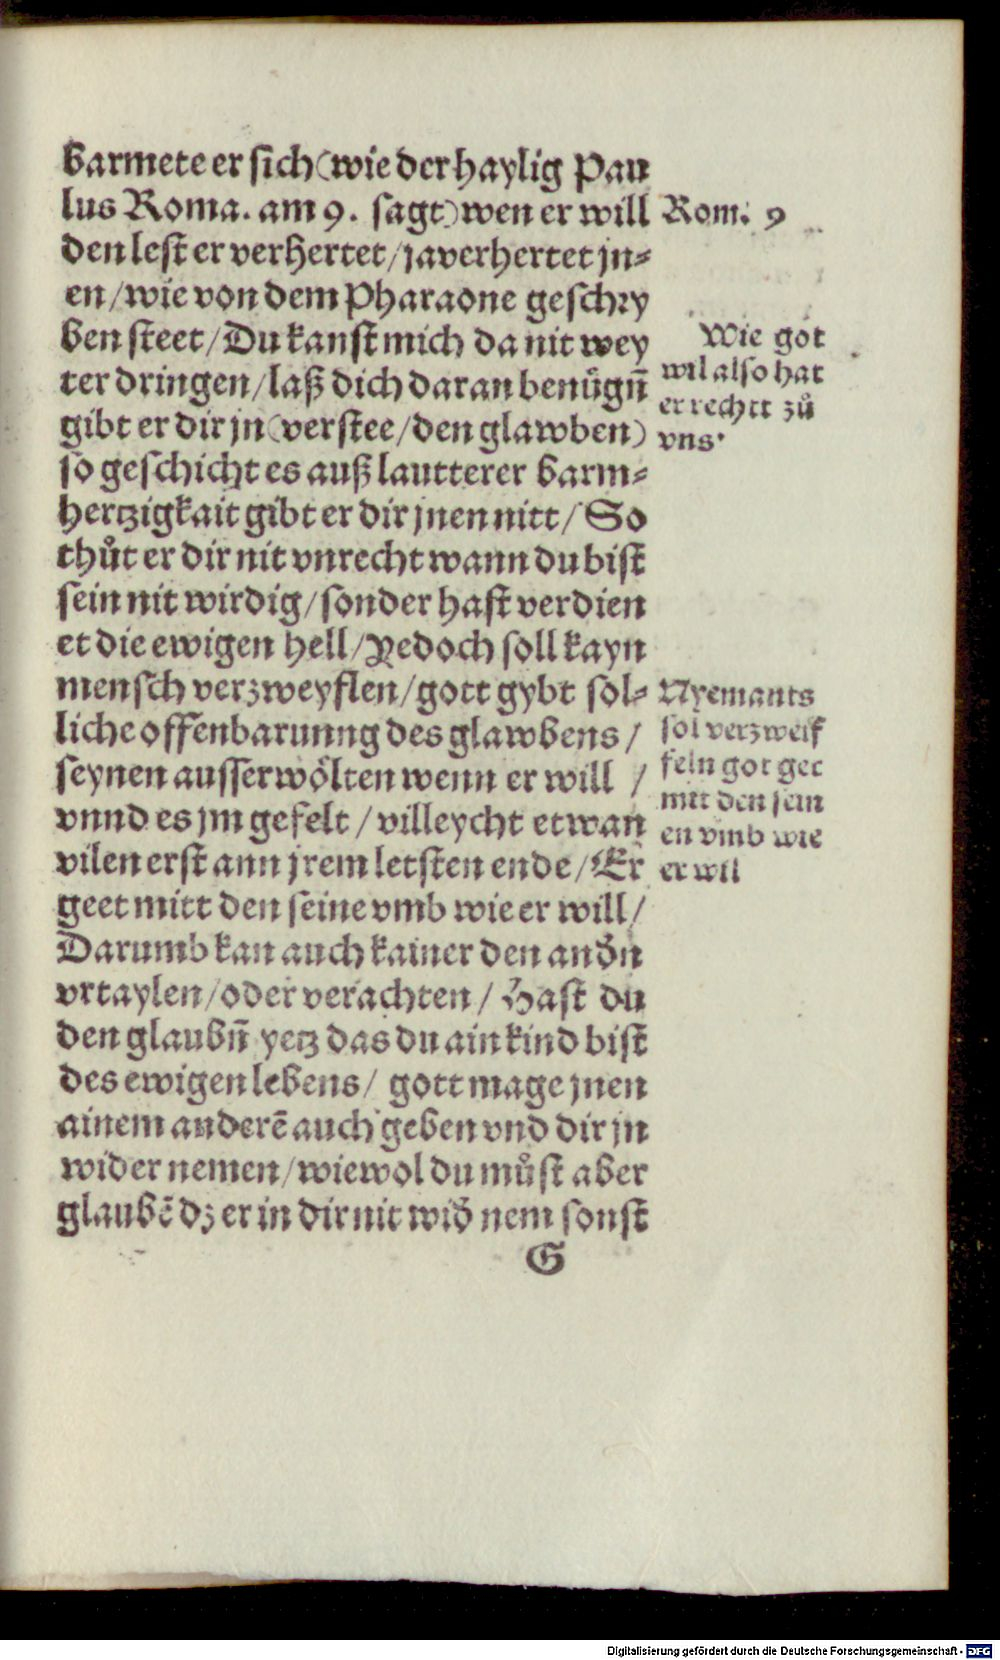 barmete er sich (wie der haylig Pau
lus Roma. am 9. sagt) wen er will
den lest er verhertet / ja verhertet jn⸗
en / wie von dem Pharaone geschry
ben steet / Du kanst mich da nit wey
ter dringen / laß dich daran benůgn̄
gibt er dir jn (verstee / den glawben)
so geschicht es auß lautterer barm⸗
hertzigkait gibt er dir jnen nitt / So
thůt er dir nit vnrecht wann du bist
sein nit wirdig / sonder hast verdien
et die ewigen hell / Yedoch soll kayn
mensch verzweyflen / gott gybt sol⸗
liche offenbarunng des glawbens /
seynen ausserwölten wenn er will /
vnnd es jm gefelt / villeycht etwan
vilen erst ann jrem letsten ende / Er
geet mitt den seine vmb wie er will /
Darumb kan auch kainer den andn̄
vrtaylen / oder verachten / Hast du
den glaubn̄ yetz das du ain kind bist
des ewigen lebens / gott mage jnen
ainem anderē auch geben vnd dir jn
wider nemen / wiewol du můst aber
glaubē dz er in dir nit wid̄ nem sonst
G
Rom. 9
Wie got
wil also hat
er rechtt zů
vns.
Nyemants
sol verzweif
feln got get
mit den sein
en vmb wie
er wil
Digitalisierung gefördert durch die Deutsche Forschungsgemeinschaft - DFG